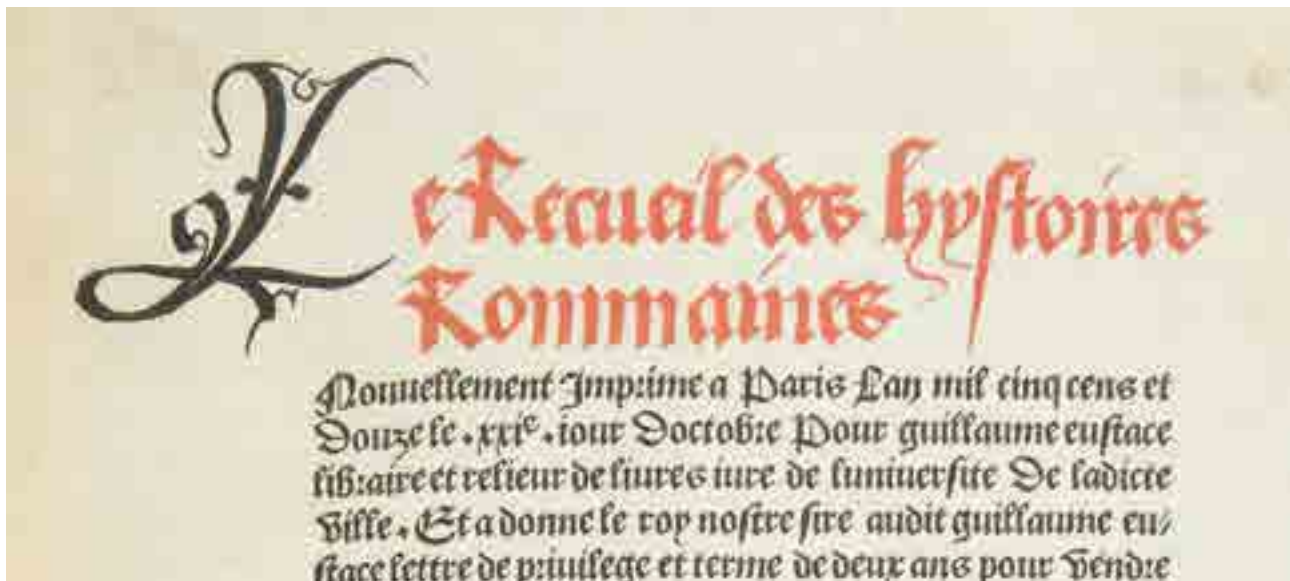 Le Recueil des hystoires
Rommaines
Nouuellement Imprime a Paris Lan mil cinq cens et
Douze le .xxie. iour Doctobre Pour guillaume eustace
libraire et relieur de liures iure de luniuersite De ladicte
ville. Et a donne le roy nostre sire audit guillaume eu/
stace lettre de priuilege et terme de deux ans pour vendre